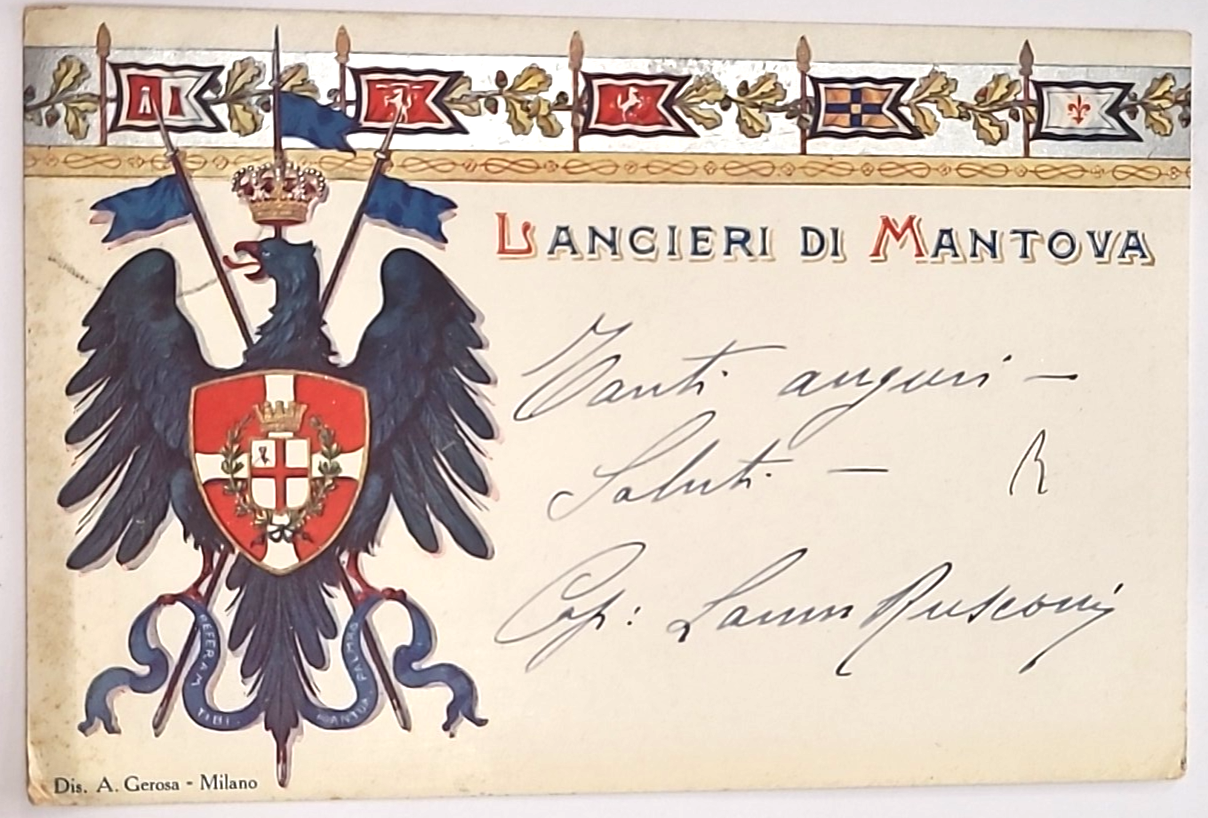 LANCIERI DI MANTOVA
Tanti auguri –
Saluti – R
Cap: Rusconi
REFERAM TIBI MANTUA PALMAS
Dis. A. Gerosa - Milano